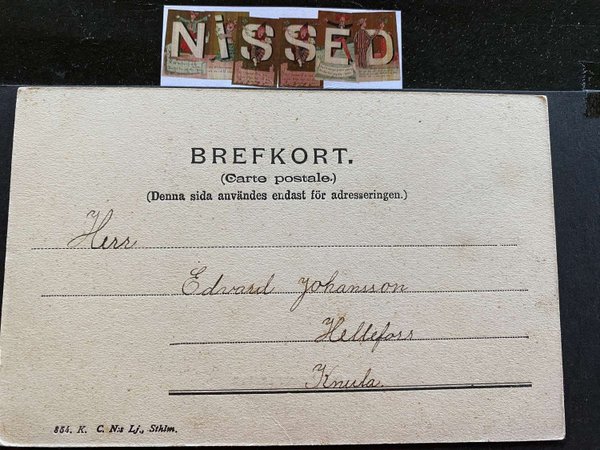 NiSSED
BREFKORT.
(Carte postale.)
(Denna sida användes endast för adresseringen.)
Herr
Edvard Johansson
Hellefors
Knula.
854. K. C. N:s Lj., Sthlm.